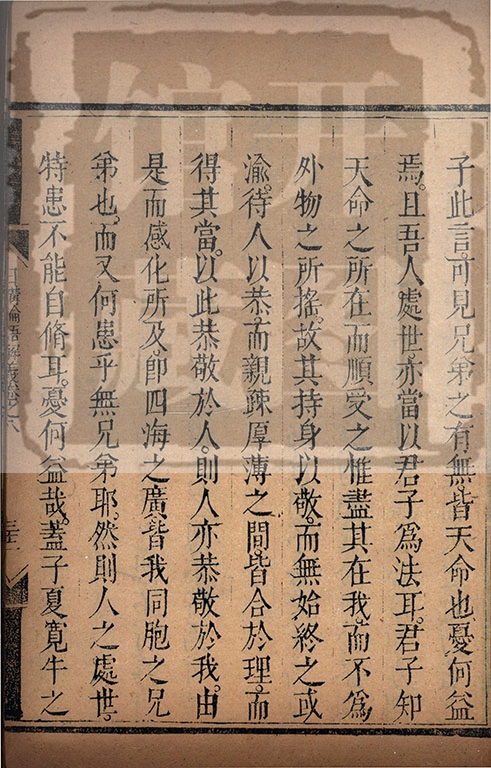 子此言可見兄弟之有無皆天命也憂何益
焉。且吾人處世亦當以君子爲法耳。君子知
天命之所在而順受之惟盡其在我。而不爲
外物之所搖。故其持身以敬。而無始終之或
渝。待人以恭。而親疎厚薄之間。皆合於理。而
得其當。以此恭敬於人。則人亦恭敬於我。由
是而感化所及。卽四海之廣皆我同胞之兄
弟也。而又何患乎無兄弟耶。然則人之處世。
特患不能自脩耳。憂何益哉。蓋子夏寬牛之